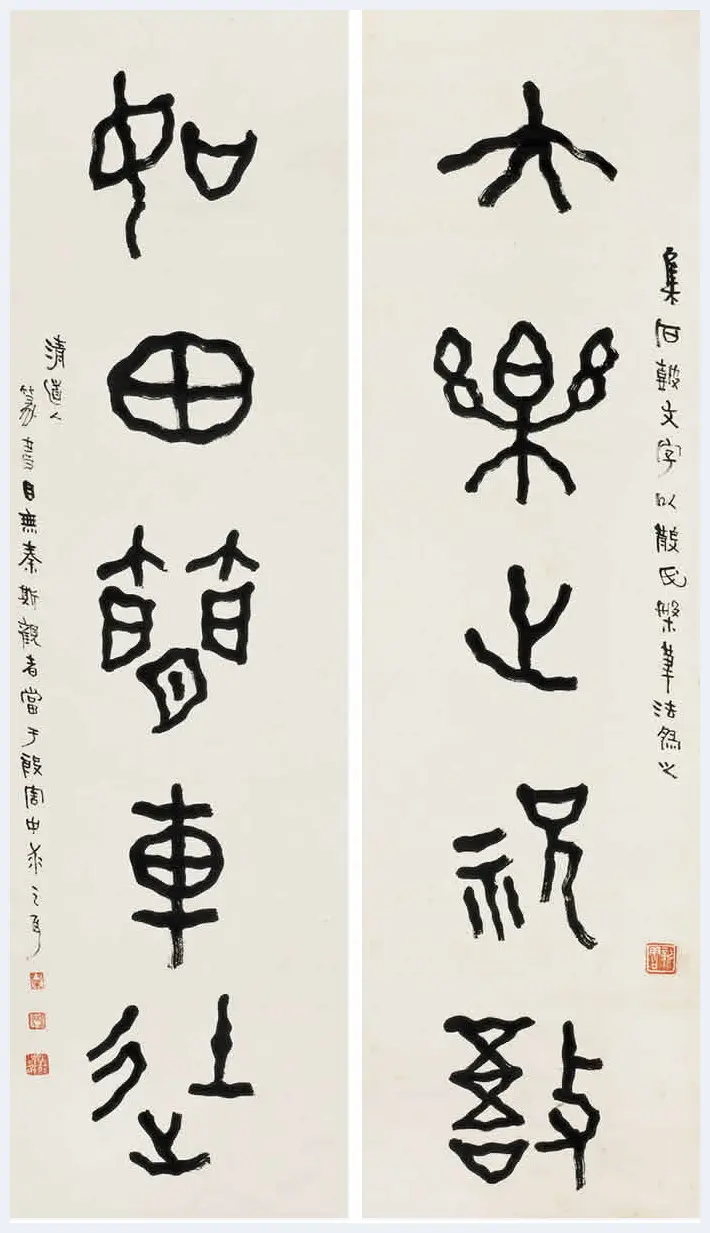 集石鼓文字以散氏槃筆法為之
大樂止祝敔
如田簡車徒
清道人
篆書目無秦斯觀者當于殷周中求之耳